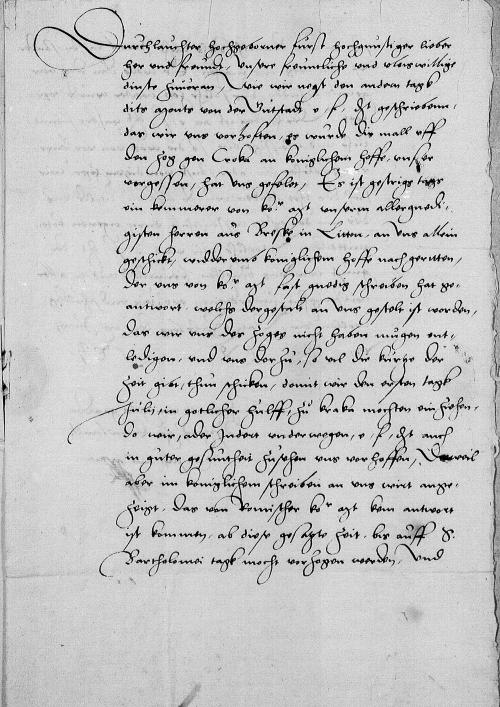 Durchlauchter hochgeborner furst hochgunstiger lieber
her und freundt, Unsere freuntliche und vleiswillige
dinste zuuoran, Wie wir negst den andern tagk
dits monts von der Gutstadt e. f. dt geschriebenn,
das wir uns vorhoffen, es wurde dis mall uff
den zog gen Croka an koniglichem hoffe, unser
vorgessen, hat uns gefelet, Es ist gestrigs tags
ein kemmerer von ko.r mgt unserm allergnedi-
gisten herren aus Breske in Litten, an uns allein
geschickt, widderumb koniglichem hoffe nach geritten,
der uns von ko.r mgt fast gnedig schreiben hat ge-
antwort, welchs dergestalt an uns gestelt ist worden,
das wir uns des zoges nicht haben mugen ent-
ledigen, und uns dorzu, so vil die kurze der
zeit gibt, thun schicken, domit wir den ersten tagk
Julij, in gotlicher hulff, zu kraka mochten einziehen,
do wir, ader indert underwegen, e. f. dt auch
in guter gesuntheit zusehen uns vorhoffen, Dieweil
aber im koniglichem schreiben an uns wirt ange-
zeigt, das von Romischer ko.r mgt kein antwort
ist kommen, ab diese gesagte zeit, bis auff S.
Bartholomei tagk mocht vorzogen werden, Und